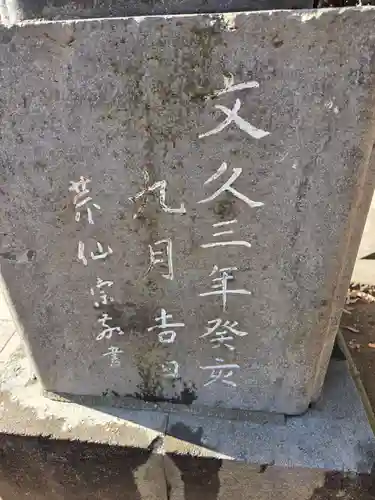 文久三年癸亥
九月吉日
芹仙宗敬書